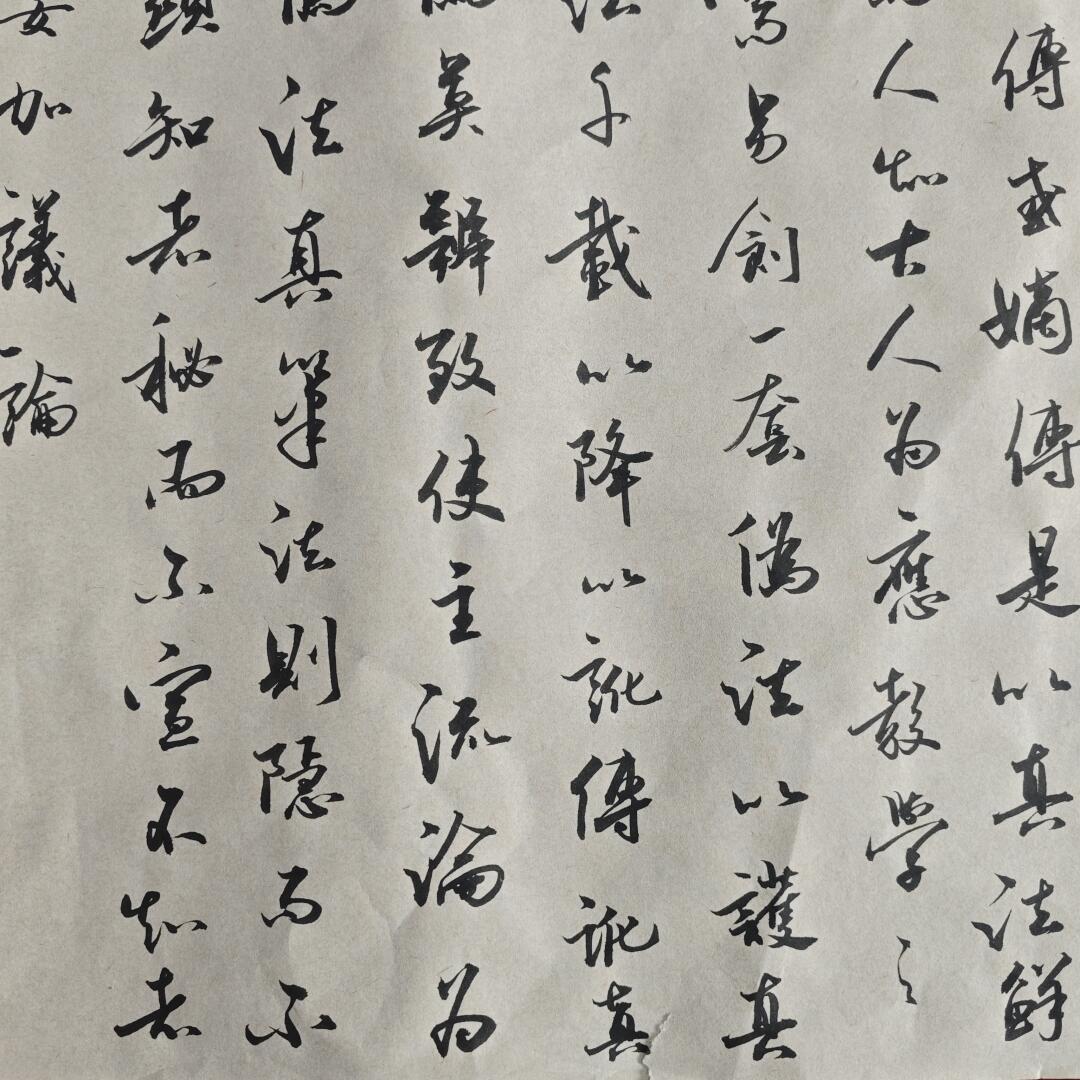 傳或嫡傳是以真法鮮
人知古人為應教學之
易創一套偽法以護真
法千載以降以訛傳訛真
莫辨致使主流論為
法真筆法則隱而不
顯知者秘而不宣不知者
妄加議論